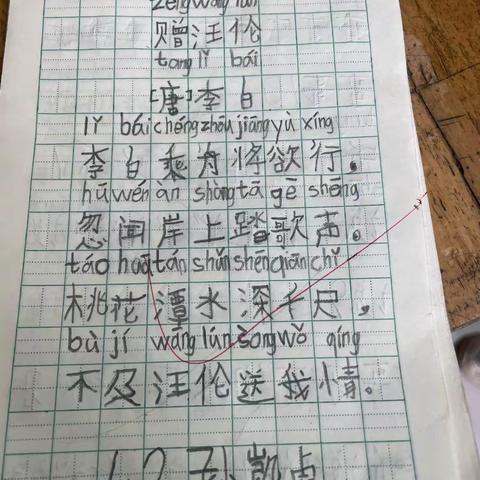 zèng wāng lún
赠汪伦
tang lǐ bái
[唐]李白
lǐ bái chéng zhōu jiāng yù xíng
李白乘舟将欲行,
hū wén àn shàng tà gē shēng
忽闻岸上踏歌声。
táo huā tán shuǐ shēn qiān chǐ
桃花潭水深千尺,
bù jí wāng lún sòng wǒ qíng
不及汪伦送我情。